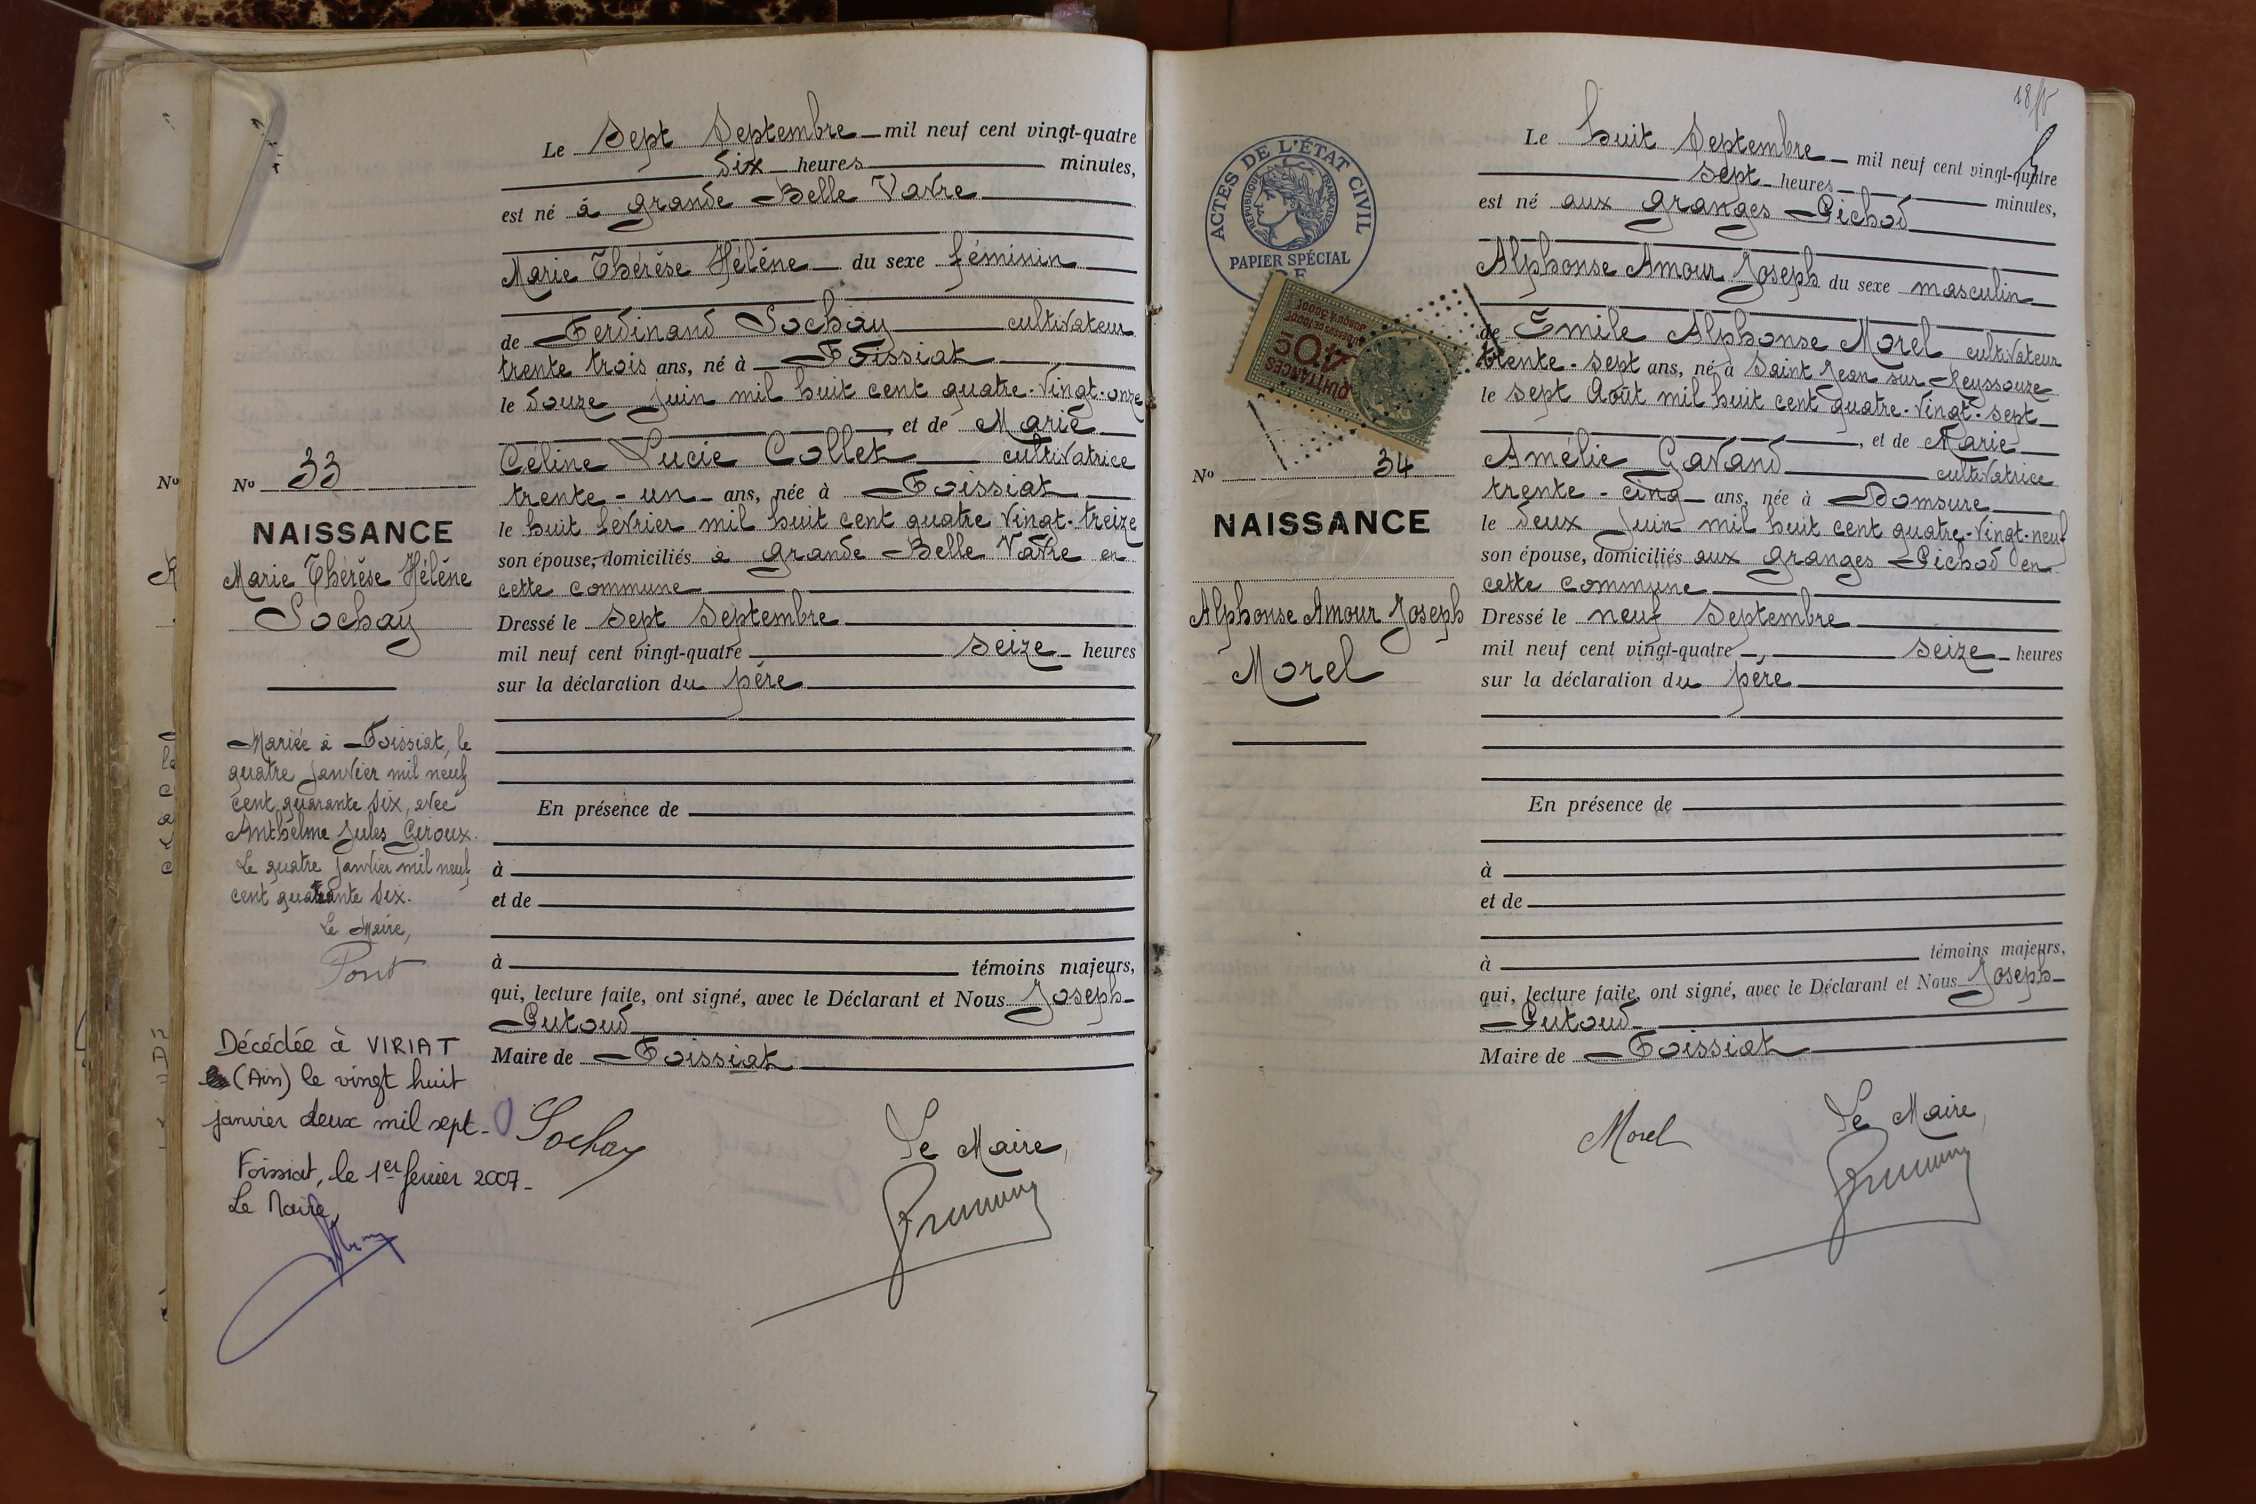 Le Sept Septembre mil neuf cent vingt-quatre
Six heures minutes,
est né à Grande Belle Vavre
Marie Thérèse Hélène du sexe féminin
de Ferdinand Sochay cultivateur
trente trois ans, né à Foissiat
le douze Juin mil huit cent quatre-vingt-onze
, et de Marie
Céline Lucie Collet cultivatrice
trente-un ans, née à Foissiat
le huit Février mil huit cent quatre vingt-treize
son épouse, domiciliés à Grande Belle Vavre en
cette commune
Dressé le Sept Septembre
mil neuf cent vingt-quatre seize heures
sur la déclaration du père
En présence de
à
et de
à témoins majeurs,
qui, lecture faite, ont signé, avec le Déclarant et Nous Joseph
Putoud
Maire de Foissiat
Sochay
Le Maire,
No
No 33
NAISSANCE
Marie Thérèse Hélène
Sochay
Mariée à Foissiat, le
quatre Janvier mil neuf
cent quarante six, avec
Anthelme Jules Giroux.
Le quatre Janvier mil neuf
cent quarante six.
Le Maire,
Pont
Décédée à VIRIAT
(Ain) le vingt huit
janvier deux mil sept_
Foissiat, le 1er février 2007_
Le Maire,
18/5
Le huit Septembre mil neuf cent vingt-quatre
Sept heures minutes,
est né aux Granges Pichod
Alphonse Amour Joseph du sexe masculin
de Emile Alphonse Morel cultivateur
trente-sept ans, né à Saint Jean sur Reyssouze
le sept Août mil huit cent quatre-vingt-sept
, et de Marie
Amélie Gavand cultivatrice
trente-cinq ans, née à Domsure
le deux Juin mil huit cent quatre-vingt-neuf
son épouse, domiciliés aux Granges Pichod en
cette commune
Dressé le neuf Septembre
mil neuf cent vingt-quatre, seize heures
sur la déclaration du père
En présence de
à
et de
à témoins majeurs,
qui, lecture faite, ont signé, avec le Déclarant et Nous Joseph
Putoud
Maire de Foissiat
Morel
Le Maire,
ACTES DE L'ÉTAT CIVIL
RÉPUBLIQUE FRANÇAISE
PAPIER SPÉCIAL
QUITTANCES
40c
No 34
NAISSANCE
Alphonse Amour Joseph
Morel